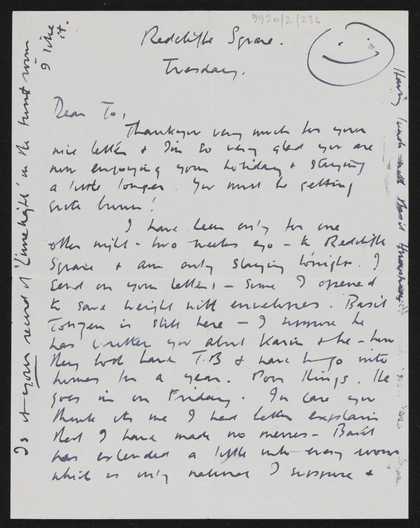 9920/2/236
Redcliffe Square.
Tuesday.
Dear To,
Thankyou very much for your
nice letter & I'm so very glad you are
now enjoying your holiday & staying
a little longer. You must be getting
quite brown!
I have been only for one
other night - two weeks ago - to Redcliffe
Square & am only staying tonight. I
send on your letters - some I opened
to save weight with envelopes. Basil
is still here - I suppose he
has written you about Karin & he - how
they both have T.B & have to go into
homes for a year. Poor things. He
goes in on Friday. In case you
think its me I had better explain
that I have made no messes - Basil
has extended a little into every room
which is only natural I suppose &
Is it your record of 'Limelight' in the front room
I like it.
Having lunch with